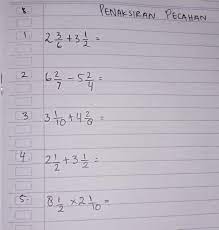 PENAKSIRAN PECAHAN
1 2 3/6 + 3 1/2 =
2 6 2/7 - 5 2/4 =
3 3 1/10 + 4 2/9 =
4. 2 1/2 + 3 1/2 =
5. 8 1/2 × 2 1/10 =